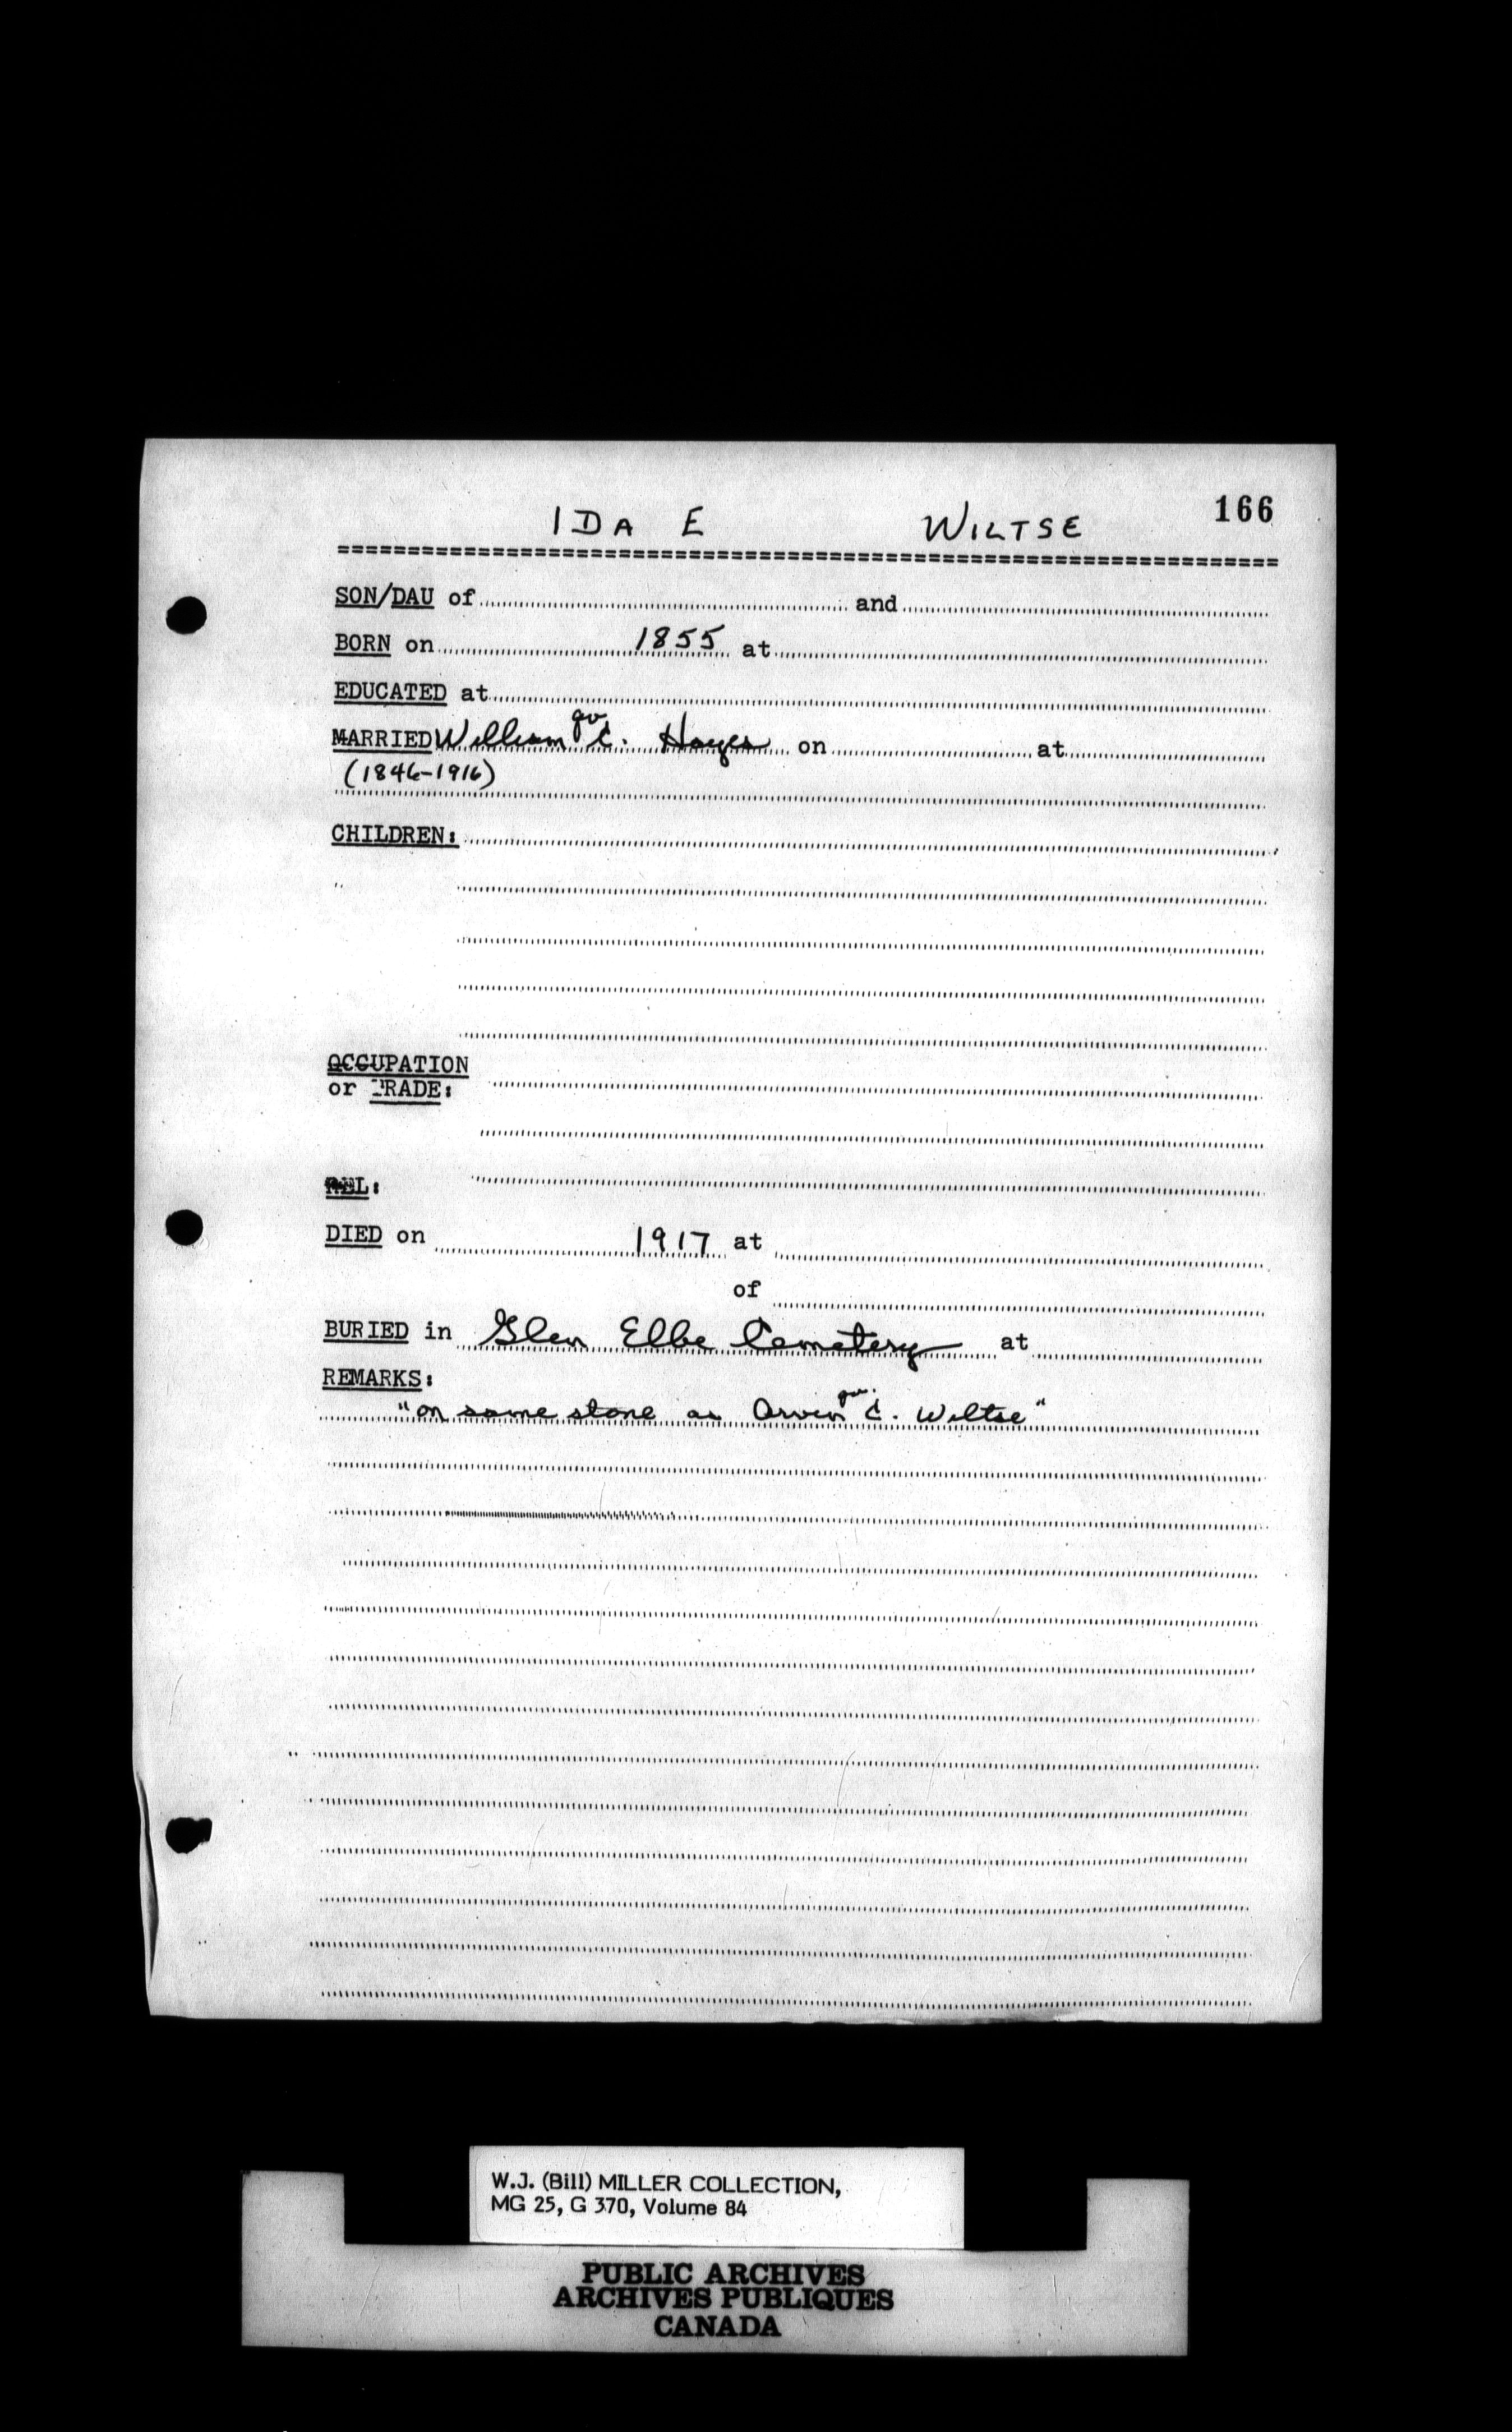 166
IDA E WILTSE
SON/DAU of and
BORN on 1855 at
EDUCATED at
MARRIED William qv C. Hayes on at
(1846-1916)
CHILDREN:
OCCUPATION
or TRADE:
REL:
DIED on 1917 at
of
BURIED in Glen Elbe Cemetery at
REMARKS:
"on same stone as Orven qv. C. Wiltse"
W.J. (Bill) MILLER COLLECTION,
MG 25, G 370, Volume 84
PUBLIC ARCHIVES
ARCHIVES PUBLIQUES
CANADA